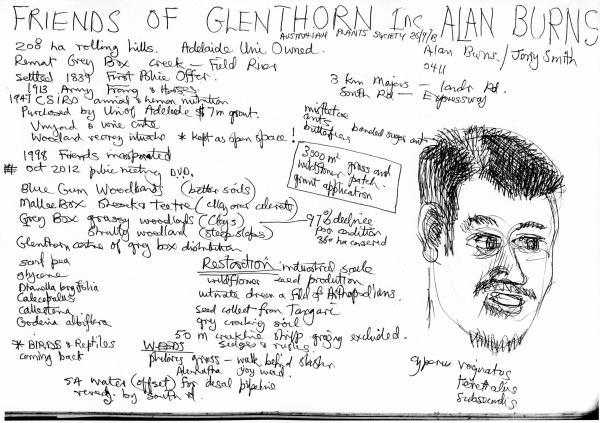 FRIENDS OF GLENTHORN Inc, ALAN BURNS
AUSTRALIAN PLANTS SOCIETY 26/9/13
208 ha rolling hills. Adelaide Uni Owned.
Alan Burns / Tony Smith
0411
Remnat Grey Box creek - Field River
settled 1839 First Police Officer.
3 km Majors - Lander Rd.
South Rd - Expressway
1913 Army & Horses
1947 CSIRO animal & human nutrition
Purchased by Uni of Adelaide $7m grant.
Vinyard & wine
Woodland recovery * kept as open space!
mistletoe
ants
butterflies
banded sugar ant
1998 Friends incorporated
Oct 2012 public meeting DVD.
3000 m² grass and
wildflower patch.
grant application
Blue Gum Woodland (better soils)
Mallee Box Tea tree (clay over
Grey Box grassy woodlands (clays)
shrubby woodland (steep slopes)
97% decline
poor condition
360 ha conserved
Glenthorn centre of grey box distribution
scarf pea
glycene
Dianella longifolia
Calocephalus
callostema
Godenia albiflora
Restoration industrial scale
wildflower seed production
ultimate dream a field of Arthropodiums.
seed collect from
grey cracking soil
50 m creekline strip grazing excluded.
sedges & rushes
* BIRDS & Reptiles
coming back
WEEDS
phalaris grass - walk behind slasher
weed.
SA Water (offset) for desal pipeline
reveg. by south rd.
cyperus vaginatus
subsecundis